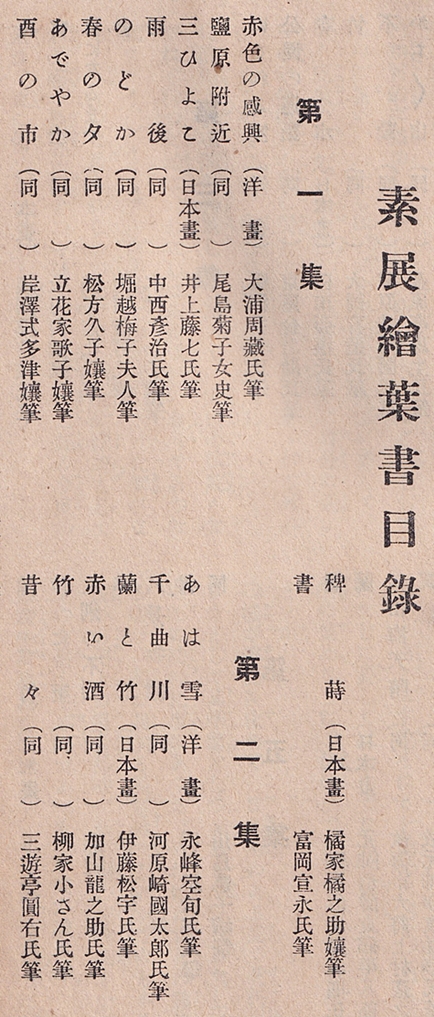 素展繪葉書目錄
第一集
赤色の感興(洋畫)大浦周藏氏筆
鹽原附近(同)尾島菊子女史筆
三ひよこ(日本畫)井上藤七氏筆
雨後(同)中西彥治氏筆
のどか(同)堀越梅子夫人筆
春の夕(同)松方久子孃筆
あでやか(同)立花家歌子孃筆
酉の市(同)岸澤式多津孃筆
稗蒔(日本畫)橘家橘之助孃筆
書 富岡宣永氏筆
第二集
あは雪(洋畫)永峰空旬氏筆
千曲川(同)河原崎國太郎氏筆
蘭と竹(日本畫)伊藤松宇氏筆
赤い酒(同)加山龍之助氏筆
竹(同)柳家小さん氏筆
昔々(同)三遊亭圓右氏筆